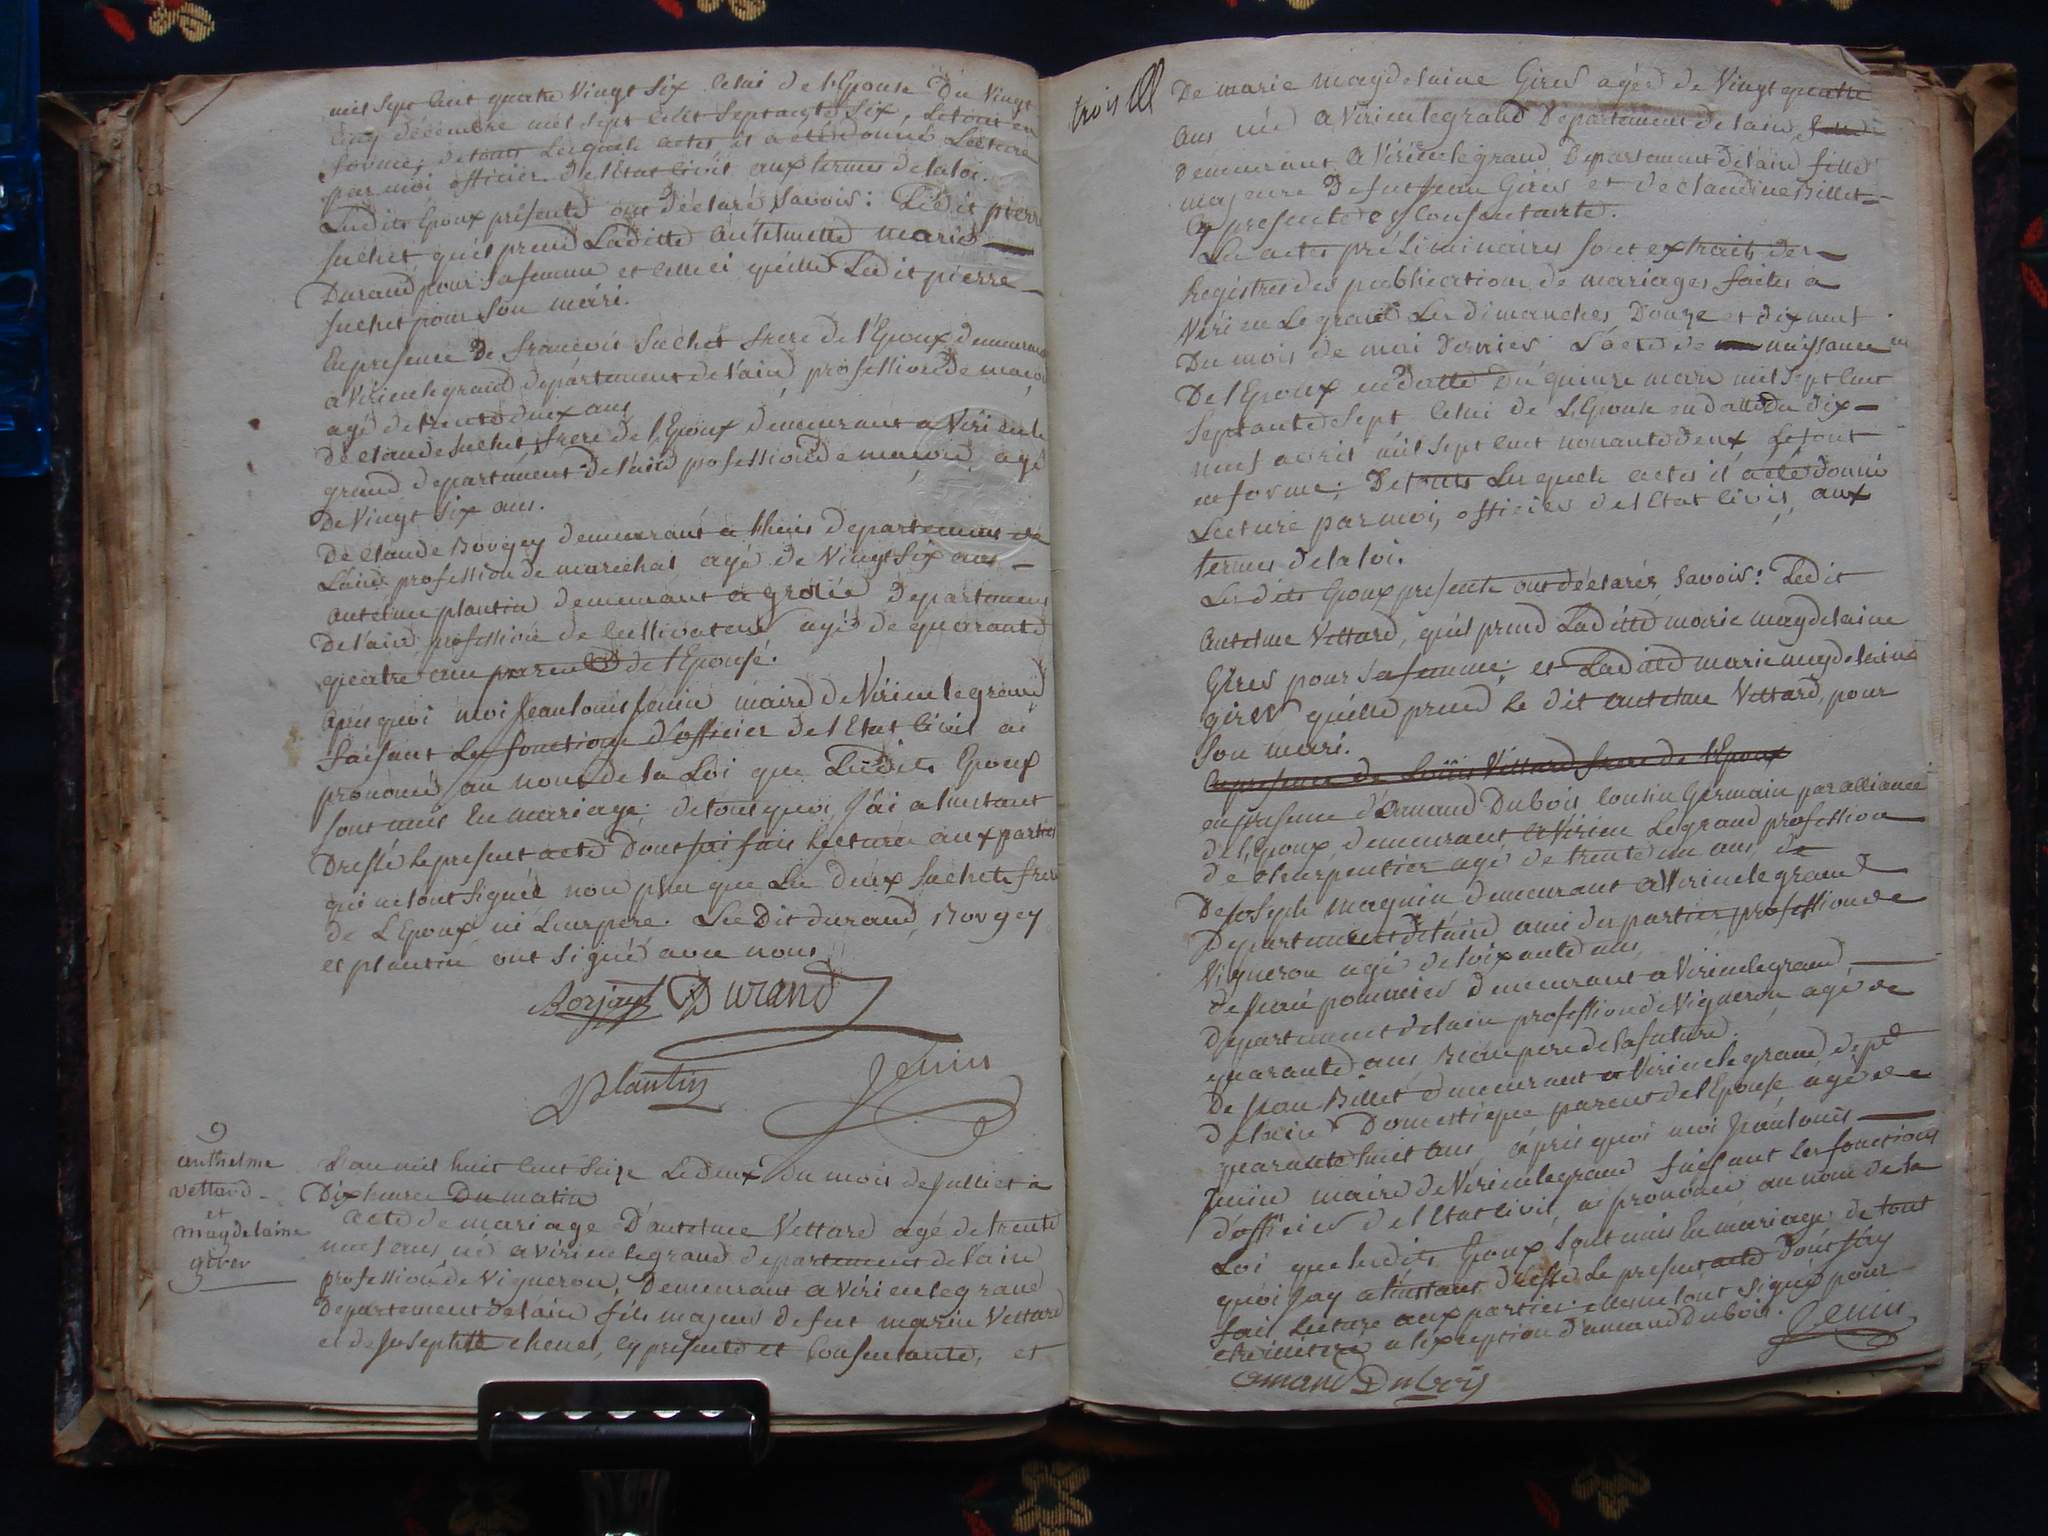 mil sept cent quatre Vingt Six celui de l'Epouse Du Vingt
cinq décembre mil sept cent Septante Six, le tout en
forme; de touts lesquels actes, il a eté donné Lecture
par moi officier de l'Etat Civil aux termes de la loi.
Lesdits Epoux présents ont déclaré Savoir: Ledit pierre
suchet qu'il prend Laditte antelmette marie
Durand pour sa femme et celle ci qu'elle Ledit pierre
suchet pour Son mari.
En presence De francois Suchet frere de l'Epoux demeurant
a Virieulegrand departement de l'ain, profession de macon
agé de trente deux ans
De claude suchet frere de l'Epoux demeurant a Virieule
grand departement de l'ain profession de macon, agé
De Vingt Six ans.
De claude Bovgey demeurant a departement de
L'ain profession de marechal agé de Vingt Six ans
antelme plantin demeurant a grolée Departement
De l'ain, profession de Cultivateur agé de quarante
quatre ans parent de l'Epouse.
après quoi moi Jean louis Jenin maire de Virieu le grand
faisant Les fonctions d'officier de l'Etat Civil ai
prononcé au nom de la Loi que Lesdits Epoux
sont unis En mariage. de tout quoi J'ai a l'instant
Dressé le present acte dont j'ai fais lecture aux parties
qui ne l'ont signée non plus que Les deux Suchets freres
de L'Epoux ni Leur pere. Les Dit durand, Bovgey
et plantin ont signé avec nous
Borjay Durand
Plantin Jenin
9
anthelme
vettard
et
magdelaine
girer
L'an mil huit Cent Seize Le deux Du mois de Julliet a
Dix heures Du matin
acte de mariage D'antelme Vettard agé de trente
neuf ans, né a Virieulegrand departement de l'ain
profession de Vigneron, Demeurant a Virieulegrand
Departement de l'ain fils majeur de feu marin Vettard
et de Josephtte chenet, cy presente et Consentante, et
trois
De marie magdelaine Gires agée de Vingt quatre
ans née a Virieulegrand Departement de l'ain,
Demeurant a Virieulegrand Departement de l'ain fille
majeure De feu Jean Girés et de claudine Billet
Cy presente et Consentante.
Les actes préliminaires sont extraits des
Registres des publications de mariages faites a
Virieu Le grand Les dimanches Douze et dix neuf
Du mois de mai Dernier. L'acte de naissance
De l'Epoux en datte Du quinze mars mil sept Cent
Septante Sept, celui de L'Epouse en datte du dix
neuf avril mil sept Cent nonante deux Le tout
en forme; De touts Lesquels actes il a eté donné
Lecture par moi, officier de l'Etat Civil, aux
termes de la loi.
Les dits Epoux presents ont déclarés, Savoir: Ledit
antelme Vettard, qu'il prend Laditte marie magdelaine
Gires pour sa femme; et Laditte marie magdelaine
gires qu'elle prend Le dit antelme Vettard, pour
Son mari.
En presence de Louis Vettard frere de l'Epoux
en presence d'amand Dubois Cousin Germain par alliance
de l'Epoux demeurant a Virieu Le grand profession
de charpentier agé de trente un ans, de
De Joseph magnin demeurant a Virieulegrand
Departement de l'ain ami des parties profession de
Vigneron agé de soixante ans,
de Jean pommier demeurant a Virieulegrand,
departement de l'ain profession de Vigneron, agé de
quarante ans, Beaupere de la future.
De Jean Billet demeurant a Virieulegrand, depd
de l'ain Domestique parent de l'Epouse agé de
quarante huit ans, après quoi moi Jean louis
Jenin maire de Virieulegrand faisant Les fonctions
d'officier de l'Etat Civil, ai prononcé au nom de la
Loi que lesdits Epoux sont unis En mariage; de tout
quoi J'ay a l'instant dressé Le present acte dont j'ay
fait lecture aux parties. elle ne l'ont signés pour
etre illiteré a l'exception d'amand dubois. Jenin
amand Dubois